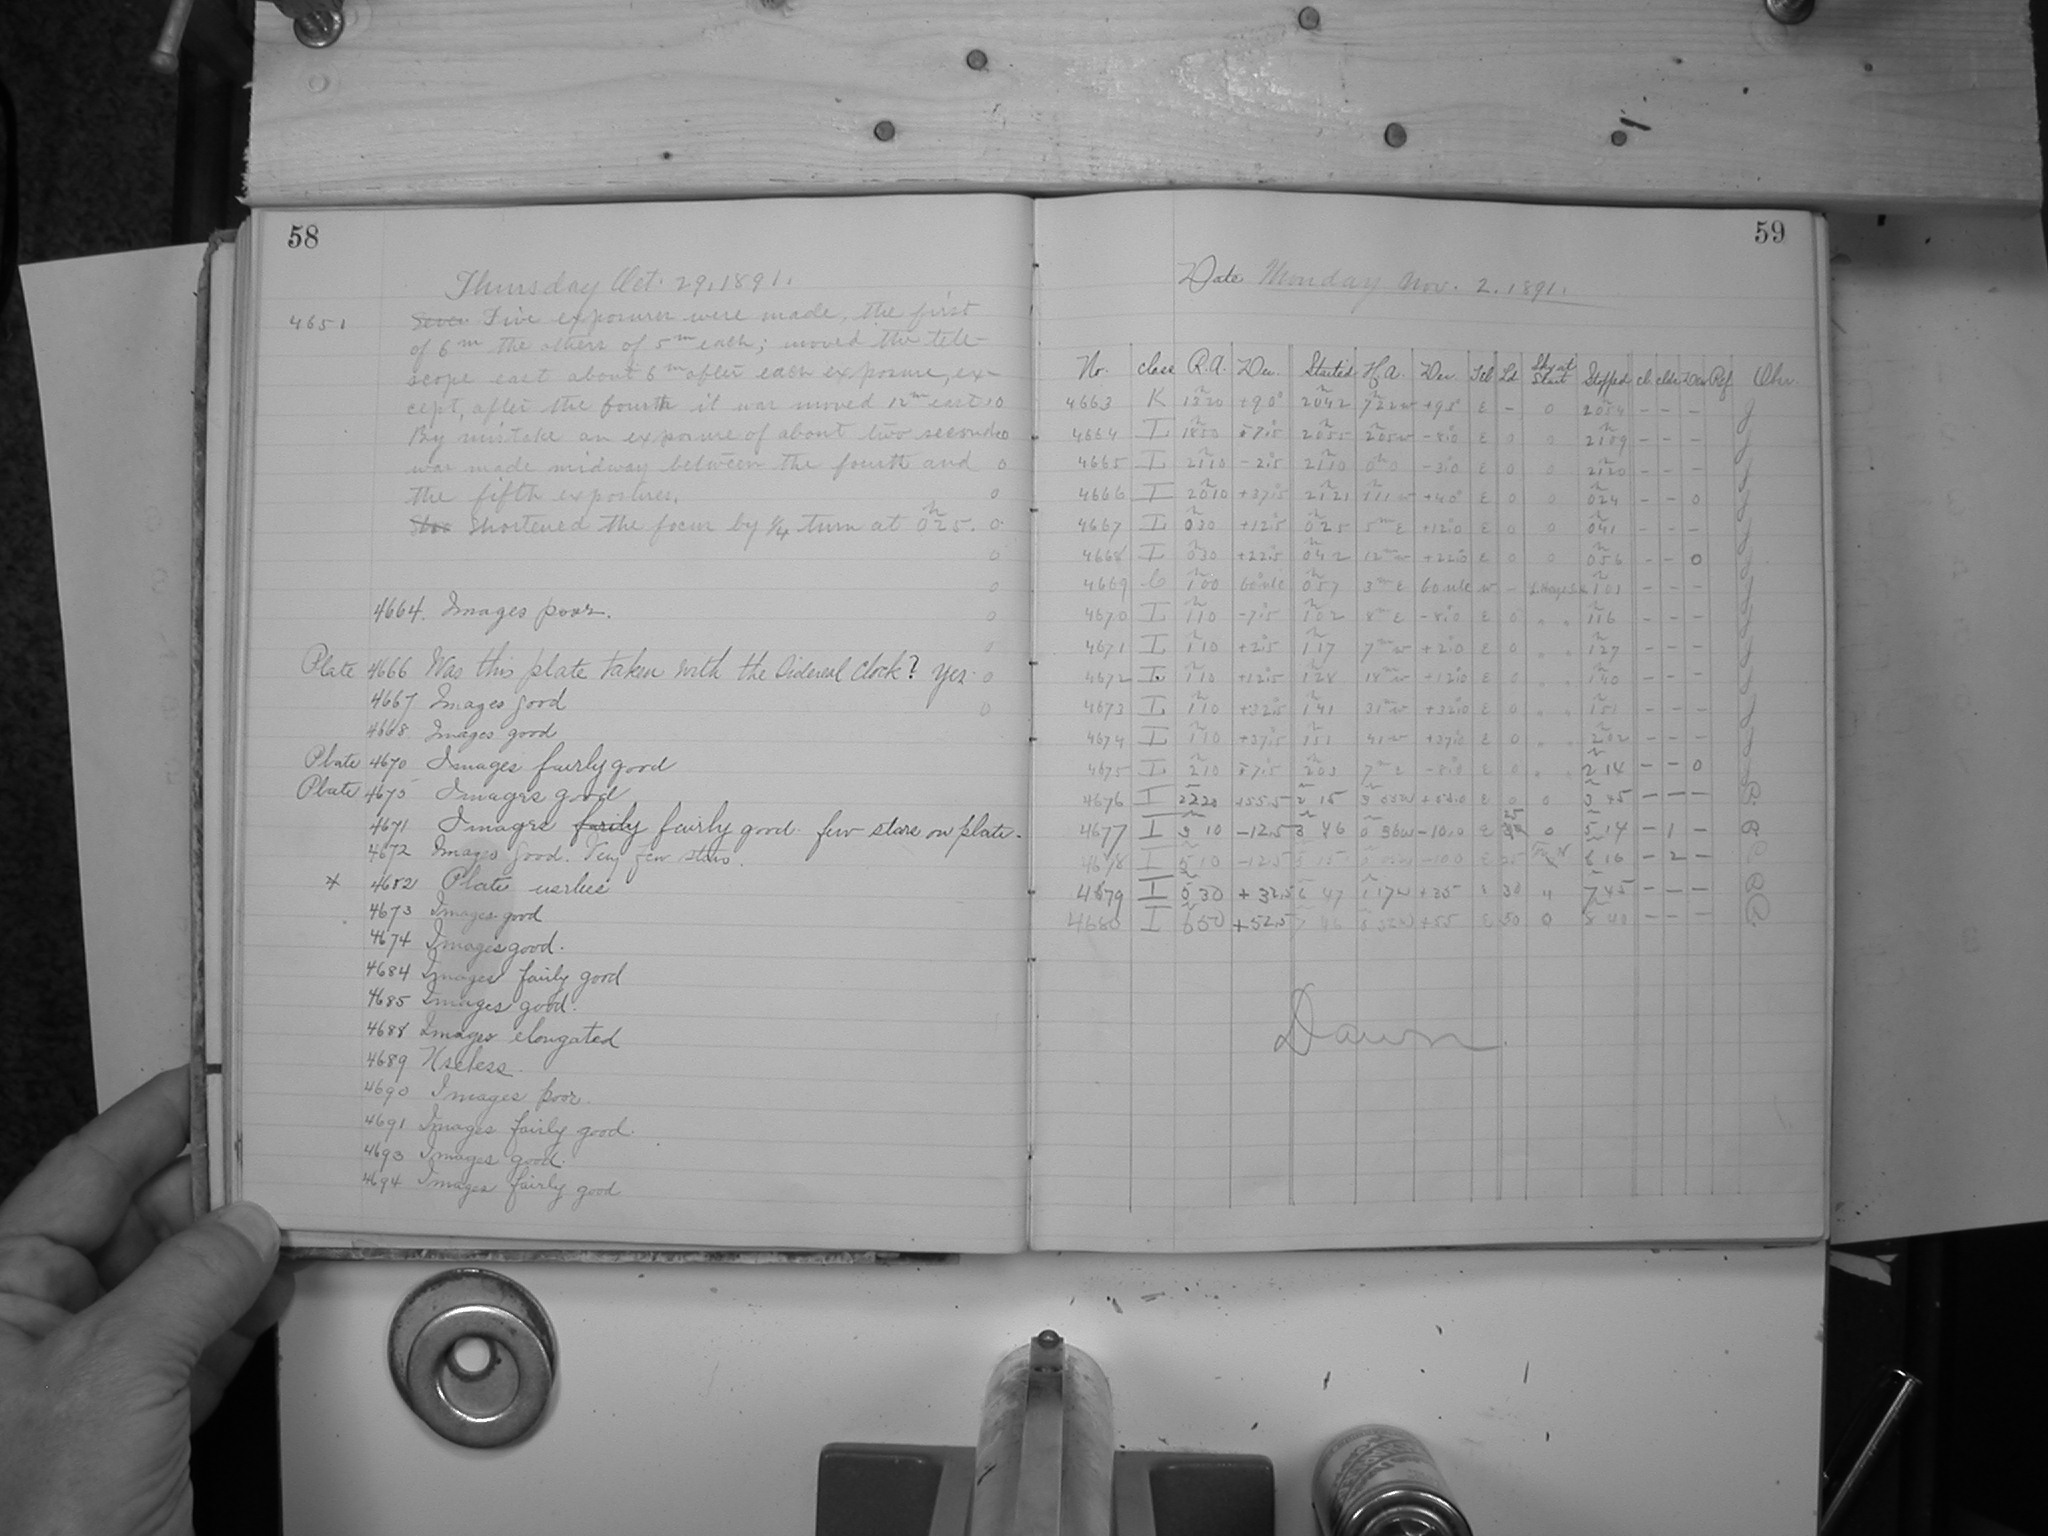 58
Thursday Oct. 29, 1891.
4651 Seven Five exposures were made, the first
of 6m the others of 5m each; moved the tele-
scope east about 6m after each exposure, ex-
cept, after the fourth it was moved 12m east
By mistake an exposure of about two seconds
was made midway between the fourth and
the fifth exposures.
Shortened the focus by 1/4 turn at 0h25.
4664. Images poor.
Plate 4666 Was this plate taken with the Sidereal Clock? Yes
4667 Images good
4668 Images good
Plate 4670 Images fairly good
Plate 4675 Images good
4671 Images fairly fairly good. few stars on plate.
4672 Images good. Very few stars.
* 4682 Plate useless
4673 Images good
4674 Images good.
4684 Images fairly good
4685 Images good.
4688 Images elongated
4689 Useless.
4690 Images poor.
4691 Images fairly good.
4693 Images good.
4694 Images fairly good
59
Date Monday Nov. 2. 1891.
No. Class R.A. Dec. Started H.A. Dec. Tel Ld Sky at Start Stopped cl. clds Dew Ref Obs.
4663 K 1320 +90° 2042 722w +90° E - 0 2054 - - - J
4664 I 1850 -7.5 2055 205w -8.0 E 0 0 2109 - - - J
4665 I 2110 -2.5 2110 0h0 -3.0 E 0 0 2120 - - - J
4666 I 2010 +37.5 2121 111w +40 E 0 0 024 - - 0 J
4667 I 030 +12.5 025 5m E +12.0 E 0 0 041 - - - J
4668 I 030 +22.5 042 12m w +22.0 E 0 0 056 - - 0 J
4669 C 100 60 057 3m E 60 w - 101 - - - J
4670 I 110 -7.5 102 8m E -8.0 E 0 " " 116 - - - J
4671 I 110 +2.5 117 7m w +2.0 E 0 " " 127 - - - J
4672 I 110 +12.5 128 18m w +12.0 E 0 " " 140 - - - J
4673 I 110 +32.5 141 31m w +32.0 E 0 " " 151 - - - J
4674 I 110 +37.5 151 41 w +37.0 E 0 " " 202 - - - J
4675 I 210 -7.5 203 7m E -8.0 E 0 " " 2 14 - - 0 J
4676 I 2220 +55.5 2 15 E 0 0 3 45 - - -
4677 I 3 10 -12.5 3 46 0 36w -10.0 E 0 5 14 - 1 -
4678 I 5 10 -12.5 5 15 -10.0 E 25 6 16 - 2 -
4679 I 5 30 +32.5 6 47 1 17w +35 E 30 " 7 45 - - -
4680 I 650 +52.5 7 46 +55 E 50 0 8 40 - - -
Dawn